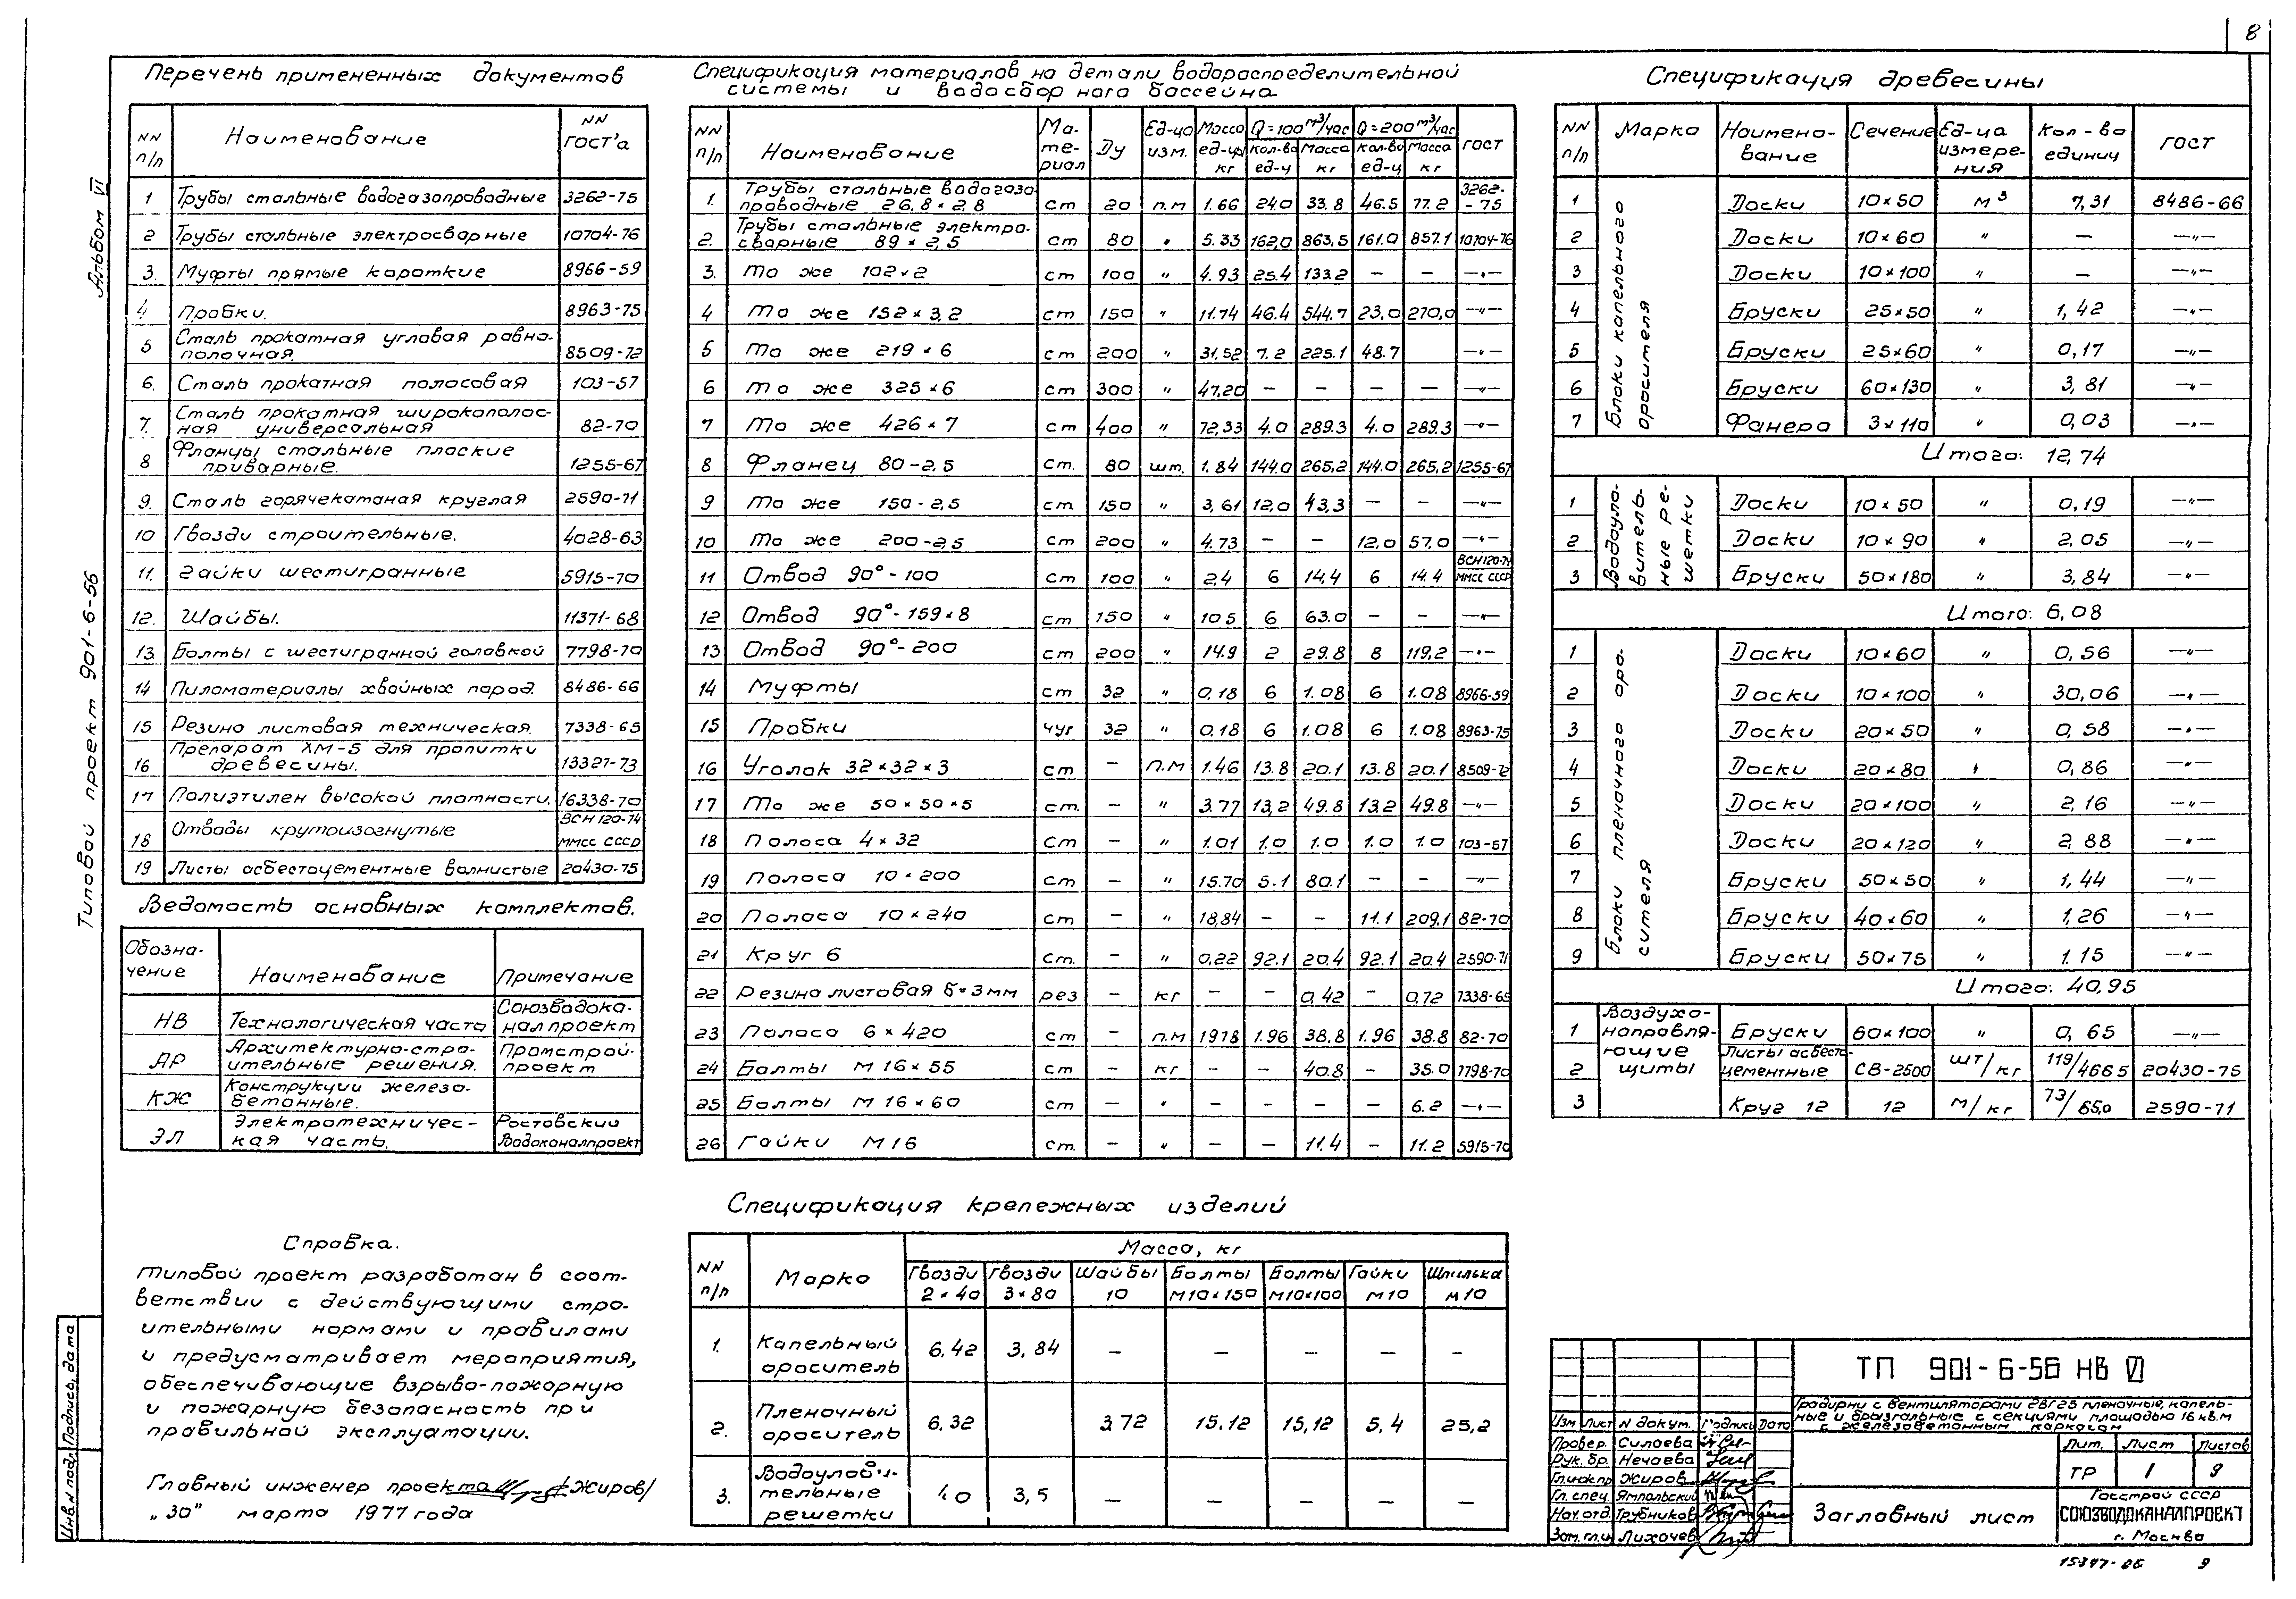 8
Альбом VI
Типовой проект 901-6-56
Инв. N подл. Подпись, дата
Перечень примененных документов
NN п/п Наименование NN ГОСТ'а
1 Трубы стальные водогазопроводные 3262-75
2 Трубы стальные электросварные 10704-76
3. Муфты прямые короткие 8966-59
4 Пробки. 8963-75
5 Сталь прокатная угловая равно-
полочная. 8509-72
6. Сталь прокатная полосовая 103-57
7. Сталь прокатная широкополос-
ная универсальная 82-70
8 Фланцы стальные плоские
приварные. 1255-67
9. Сталь горячекатаная круглая 2590-71
10 Гвозди строительные. 4028-63
11. Гайки шестигранные 5915-70
12. Шайбы. 11371-68
13 Болты с шестигранной головкой 7798-70
14 Пиломатериалы хвойных пород. 8486-66
15 Резина листовая техническая. 7338-65
16 Препарат ХМ-5 для пропитки
древесины. 13327-73
17 Полиэтилен высокой плотности. 16338-70
18 Отводы крутоизогнутые ВСН 120-74
ММСС СССР
19 Листы асбестоцементные волнистые 20430-75
Ведомость основных комплектов.
Обозна-
чение Наименование Примечание
НВ Технологическая часть Союзводока-
налпроект
АР Архитектурно-стро-
ительные решения. Промстрой-
проект
КЖ Конструкции железо-
бетонные.
ЭЛ Электротехничес-
кая часть. Ростовский
Водоканалпроект
Справка.
Типовой проект разработан в соот-
ветствии с действующими стро-
ительными нормами и правилами
и предусматривает мероприятия,
обеспечивающие взрыво-пожарную
и пожарную безопасность при
правильной эксплуатации.
Главный инженер проекта /Жиров/
„30" марта 1977 года
Спецификация материалов на детали водораспределительной
системы и водосборного бассейна
NN п/п Наименование Ма-
те-
риал Ду Ед-ца
изм. Масса
ед-цы
кг Q=100 м³/час Q=200 м³/час ГОСТ
Кол-во
ед-ц Масса
кг Кол-во
ед-ц Масса
кг
1. Трубы стальные водогазо-
проводные 26,8×2,8 ст 20 п.м 1.66 24.0 33.8 46.5 77.2 3262-
-75
2. Трубы стальные электро-
сварные 89×2,5 ст 80 " 5.33 162,0 863,5 161.0 857.1 10704-76
3. То же 102×2 ст 100 " 4.93 25.4 133.2 – – –"–
4 То же 152×3,2 ст 150 " 11.74 46.4 544.7 23.0 270,0 –"–
5 То же 219×6 ст 200 " 31,52 7.2 225.1 48.7 –"–
6 То же 325×6 ст 300 " 47,20 – – – – –"–
7 То же 426×7 ст 400 " 72,33 4.0 289.3 4.0 289.3 –"–
8 Фланец 80-2,5 ст. 80 шт. 1.84 144.0 265,2 144.0 265,2 1255-67
9 То же 150-2,5 ст 150 " 3,61 12,0 43,3 – – –"–
10 То же 200-2,5 ст 200 " 4.73 – – 12,0 57,0 –"–
11 Отвод 90°-100 ст 100 " 2,4 6 14,4 6 14.4 ВСН 120-74
ММСС СССР
12 Отвод 90°-159×8 ст 150 " 10 5 6 63.0 – – –"–
13 Отвод 90°-200 ст 200 " 14.9 2 29.8 8 119,2 –"–
14 Муфты ст 32 " 0,18 6 1.08 6 1.08 8966-59
15 Пробки чуг 32 " 0,18 6 1.08 6 1.08 8963-75
16 Уголок 32×32×3 ст – п.м 1.46 13.8 20.1 13.8 20.1 8509-72
17 То же 50×50×5 ст. – " 3.77 13,2 49.8 13.2 49.8 –"–
18 Полоса 4×32 ст – " 1.01 1.0 1.0 1.0 1.0 103-57
19 Полоса 10×200 ст – " 15.70 5.1 80.1 – – –"–
20 Полоса 10×240 ст – " 18,84 – – 11.1 209.1 82-70
21 Круг 6 ст. – " 0,22 92.1 20.4 92.1 20.4 2590-71
22 Резина листовая δ=3мм рез – кг – – 0,42 – 0,72 7338-65
23 Полоса 6×420 ст – п.м 19 78 1.96 38.8 1.96 38.8 82-70
24 Болты М16×55 ст – кг – – 40.8 – 35.0 7798-70
25 Болты М16×60 ст – " – – – – 6.2 –"–
26 Гайки М16 ст. – " – – 11.4 – 11.2 5915-70
Спецификация крепежных изделий
NN п/п Марка Масса, кг
Гвозди
2×40 Гвозди
3×80 Шайбы
10 Болты
М10×150 Болты
М10×100 Гайки
М10 Шпилька
М10
1. Капельный
ороситель 6,42 3,84 – – – – –
2. Пленочный
ороситель 6,32 3,72 15,12 15,12 5,4 25,2
3. Водоулови-
тельные
решетки 4.0 3,5 – – – – –
Спецификация древесины
NN п/п Марка Наимено-
вание Сечение Ед-ца
измере-
ния Кол-во
единиц ГОСТ
Блоки капельного
оросителя
1 Доски 10×50 м³ 7,31 8486-66
2 Доски 10×60 " – –"–
3 Доски 10×100 " – –"–
4 Бруски 25×50 " 1,42 –"–
5 Бруски 25×60 " 0,17 –"–
6 Бруски 60×130 " 3,81 –"–
7 Фанера 3×110 " 0,03 –"–
Итого: 12,74
Водоуло-
витель-
ные ре-
шетки
1 Доски 10×50 " 0,19 –"–
2 Доски 10×90 " 2,05 –"–
3 Бруски 50×180 " 3,84 –"–
Итого: 6,08
Блоки пленочного оро-
сителя
1 Доски 10×60 " 0,56 –"–
2 Доски 10×100 " 30,06 –"–
3 Доски 20×50 " 0,58 –"–
4 Доски 20×80 " 0,86 –"–
5 Доски 20×100 " 2,16 –"–
6 Доски 20×120 " 2,88 –"–
7 Бруски 50×50 " 1,44 –"–
8 Бруски 40×60 " 1,26 –"–
9 Бруски 50×75 " 1.15 –"–
Итого: 40,95
Воздухо-
направля-
ющие
щиты
1 Бруски 60×100 " 0,65 –"–
2 Листы асбесто-
цементные СВ-2500 шт/кг 119/4665 20430-75
3 Круг 12 12 м/кг 73/65,0 2590-71
ТП 901-6-56 НВ VI
Градирни с вентиляторами 2ВГ25 пленочные, капель-
ные и брызгальные с секциями площадью 16 кв.м
с железобетонным каркасом
Изм Лист N докум. Подпись Дата
Провер. Силаева
Рук. бр. Нечаева
Гл.инж.пр Жиров
Гл. спец. Ямпольский
Нач.отд. Трубников
Зам.гл.и Лихачев
Лит. Лист Листов
ТР 1 9
Заглавный лист
Госстрой СССР
СОЮЗВОДОКАНАЛПРОЕКТ
г. Москва
15347-06 9